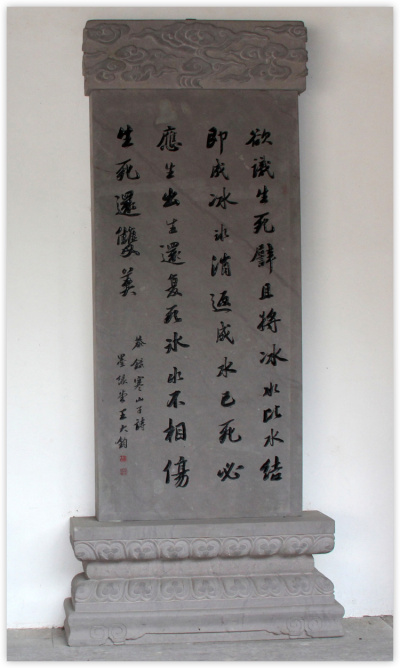 欲識生死譬且將冰水比水結
即成冰氷消返成水已死必
應生出生還复死氷水不相傷
生死還雙美
恭錄寒山子詩
王大鈞